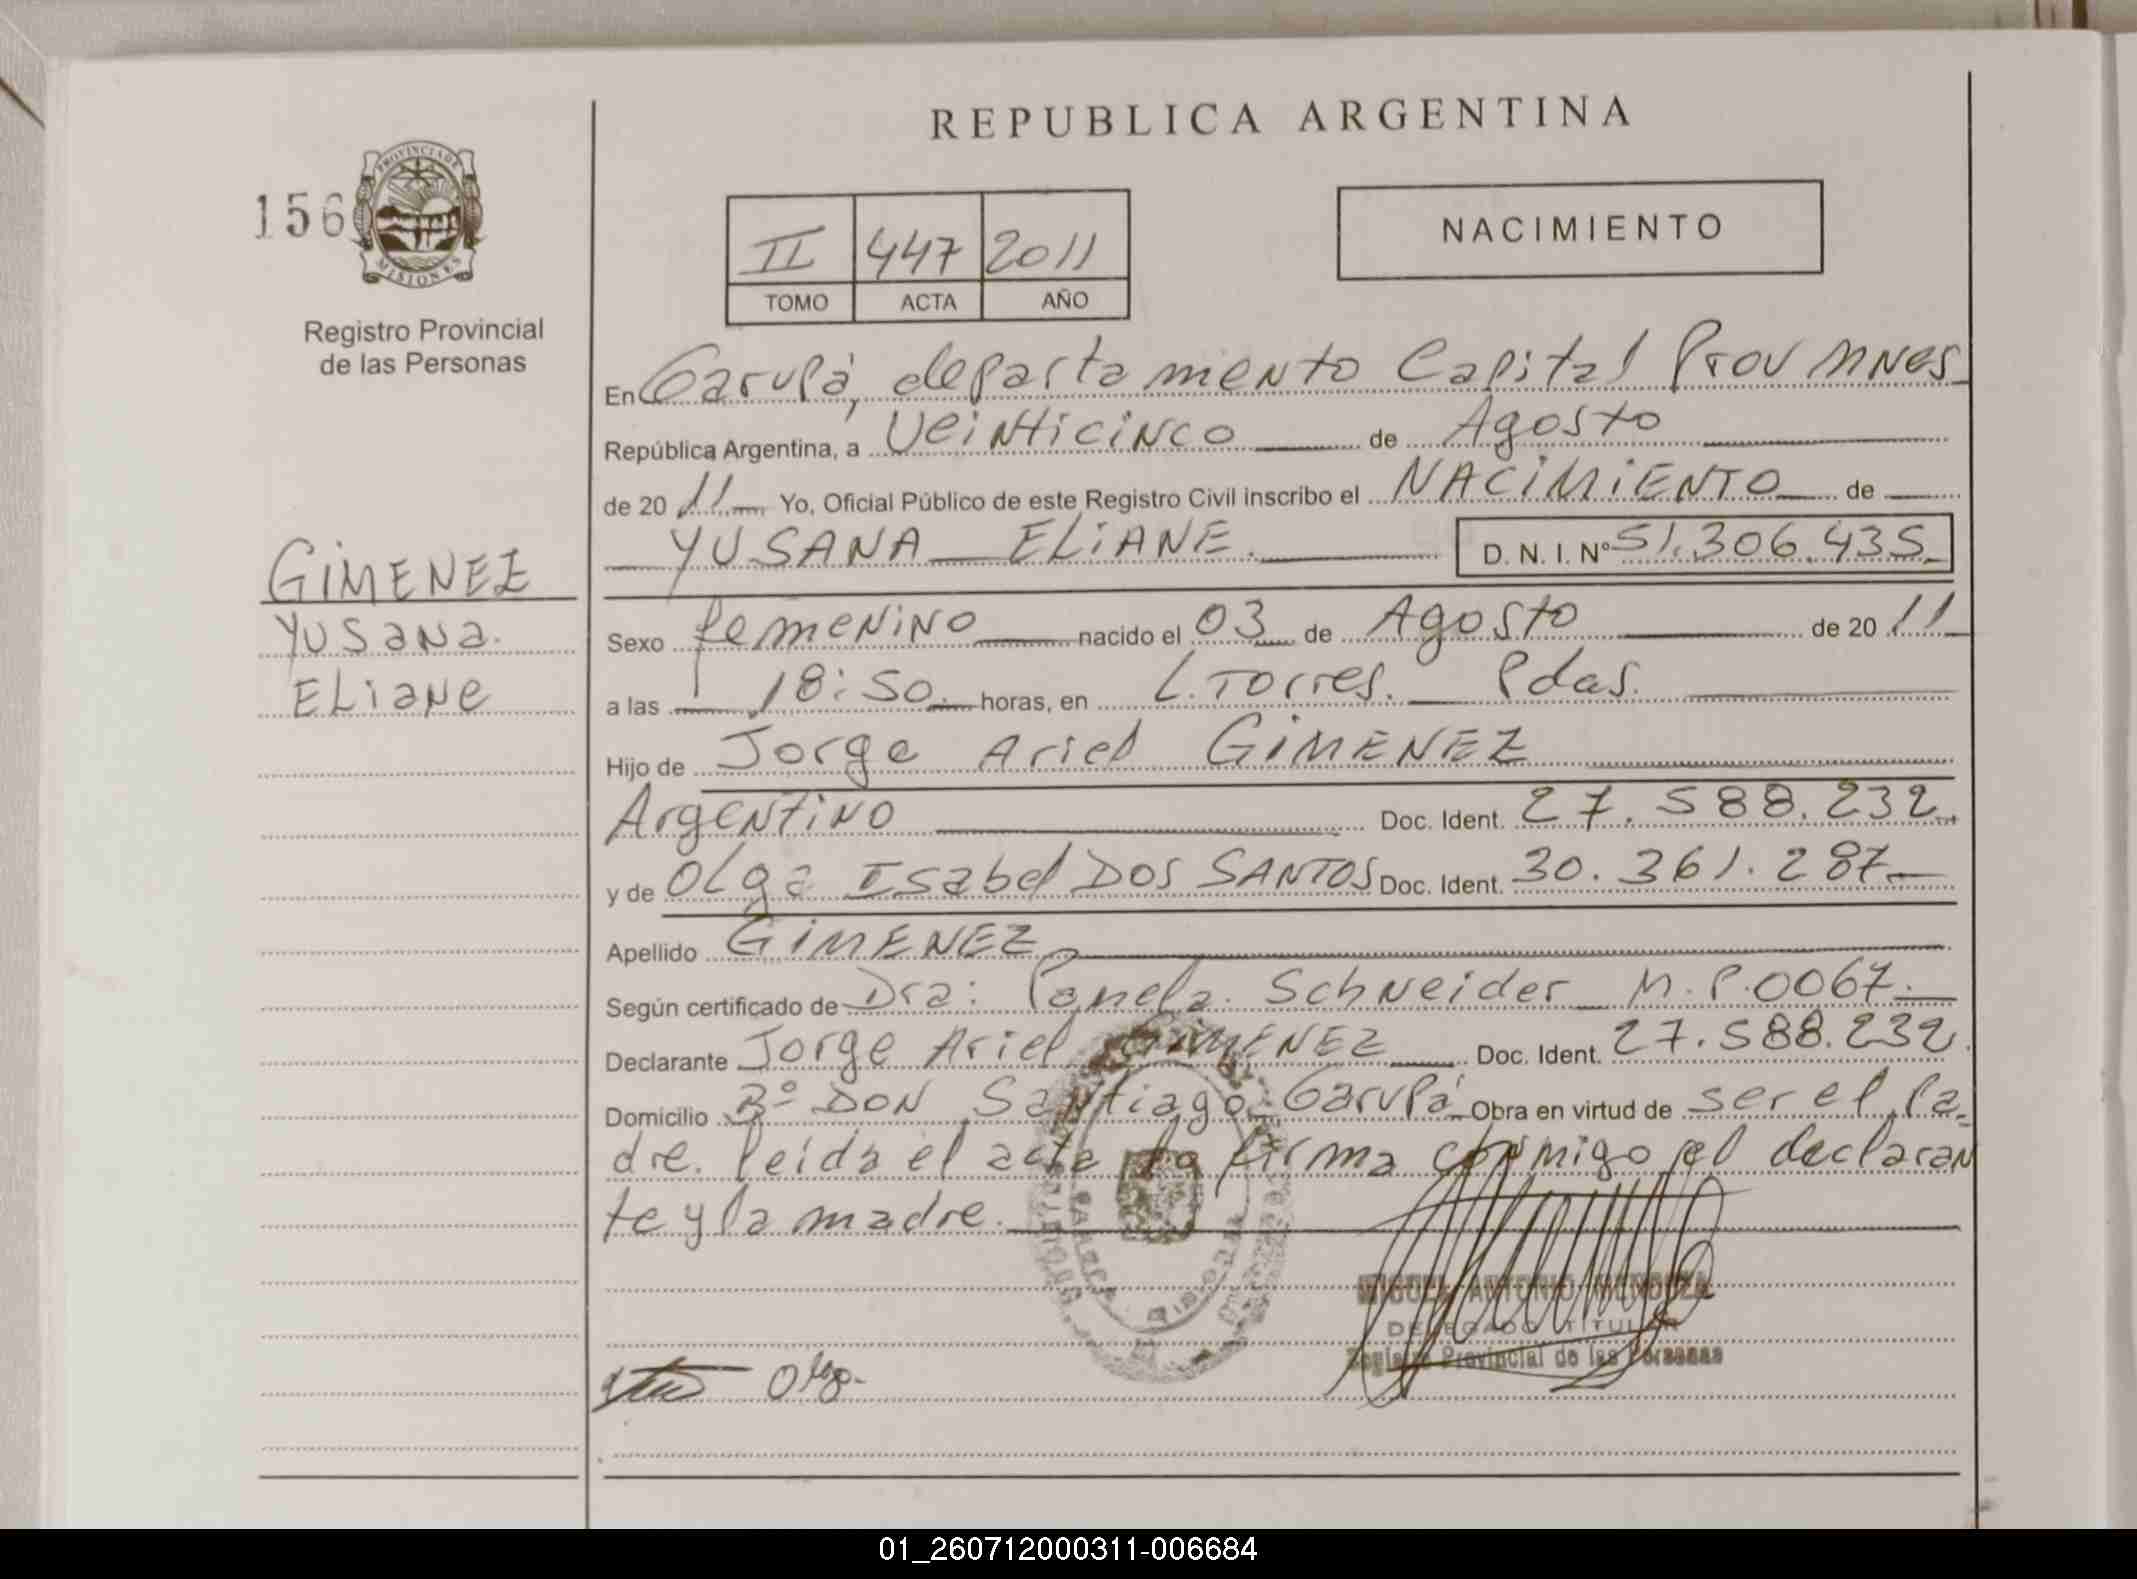 REPUBLICA ARGENTINA
156
PROVINCIA DE
MISIONES
Registro Provincial
de las Personas
II 447 2011
TOMO ACTA AÑO
NACIMIENTO
En Garupá, departamento Capital Prov Mnes
República Argentina, a Veinticinco de Agosto
de 2011 Yo, Oficial Público de este Registro Civil inscribo el NACIMIENTO de
YUSANA ELIANE. D. N. I. Nº 51.306.435
GIMENEZ
YUSANA
ELIANE
Sexo femenino nacido el 03 de Agosto de 2011
a las 18:50 horas, en L. Torres. Pdas.
Hijo de Jorge Ariel GIMENEZ
Argentino Doc. Ident. 27.588.232
y de Olga Isabel DOS SANTOS Doc. Ident. 30.361.287
Apellido GIMENEZ
Según certificado de Dra: Pamela Schneider M.P.0067.
Declarante Jorge Ariel GIMENEZ Doc. Ident. 27.588.232
Domicilio Bº DON Santiago Garupá Obra en virtud de ser el pa-
dre. leída el acta la firma conmigo el declaran
te y la madre.
MIGUEL ANTONIO MENDOZA
DELEGADO TITULAR
Registro Provincial de las Personas
Olga
01_260712000311-006684